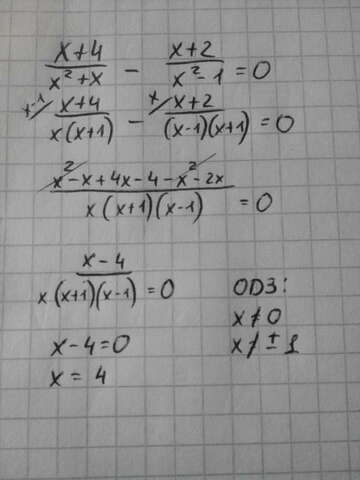 (x+4)/(x²+x) − (x+2)/(x²−1) = 0
x-1/ (x+4)/(x(x+1)) − x/ (x+2)/((x-1)(x+1)) = 0
(x²−x+4x−4−x²−2x)/(x(x+1)(x-1)) = 0
(x−4)/(x(x+1)(x-1)) = 0
ОДЗ:
x≠0
x≠±1
x−4=0
x = 4